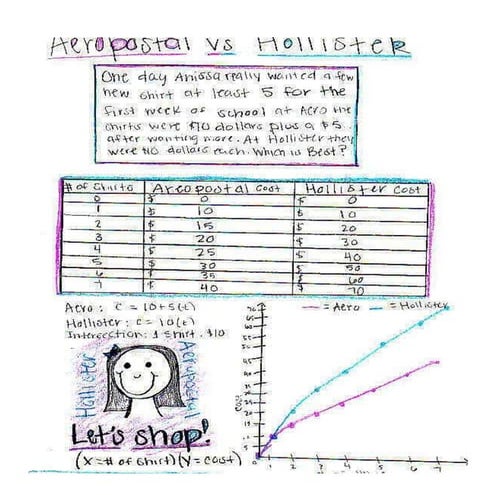 Aeropostal vs Hollister
One day Anissa really wanted a few
new shirt at least 5 for the
first week of school at Aero the
shirts were $10 dollars plus a $5
after wanting more. At Hollister they
were $10 dollars each. Which is Best?
# of Shirts Areopostal Cost Hollister Cost
0 $ 0 $ 0
1 $ 10 $ 10
2 $ 15 $ 20
3 $ 20 $ 30
4 $ 25 $ 40
5 $ 30 $ 50
6 $ 35 $ 60
7 $ 40 $ 70
Aero: C = 10+5(t)
Hollister: C = 10(t)
Intersection: 1 shirt, $10
Hollister
Aeropostal
Let's shop!
(X=# of shirt)(Y=cost)
= Aero = Hollister
cost
1 2 3 4 5 6 7